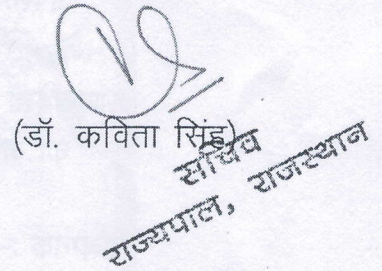 (डॉ. कविता सिंह)
सचिव
राज्यपाल, राजस्थान